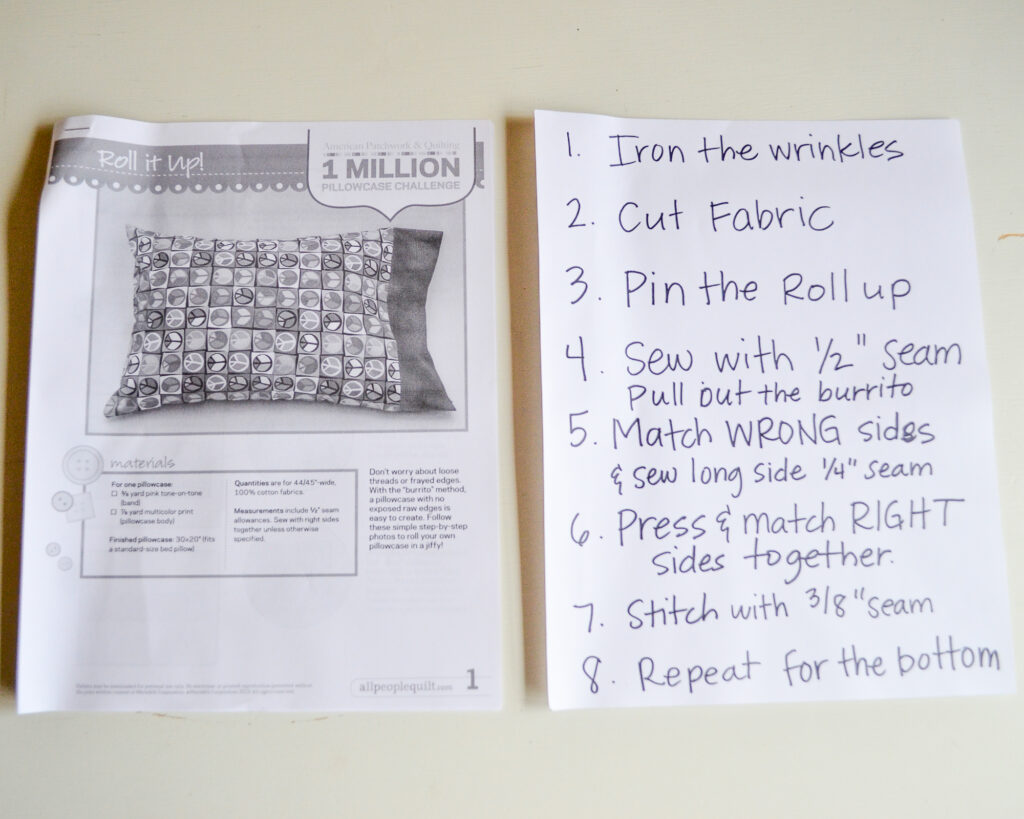 Roll it Up!
American Patchwork & Quilting
1 MILLION
PILLOWCASE CHALLENGE
materials
For one pillowcase:
yard pink tone-on-tone
(band)
yard multicolor print
(pillowcase body)
Finished pillowcase: 30×20" (fits
a standard-size bed pillow)
Quantities are for 44/45"-wide,
100% cotton fabrics.
Measurements include ½" seam
allowances. Sew with right sides
together unless otherwise
specified.
Don't worry about loose
threads or frayed edges.
With the "burrito" method,
a pillowcase with no
exposed raw edges is
easy to create. Follow
these simple step-by-step
photos to roll your own
pillowcase in a jiffy!
allpeoplequilt.com 1
1. Iron the wrinkles
2. Cut Fabric
3. Pin the Roll up
4. Sew with 1/2" seam
Pull out the burrito
5. Match WRONG sides
& sew long side 1/4" seam
6. Press & match RIGHT
sides together.
7. Stitch with 3/8" seam
8. Repeat for the bottom